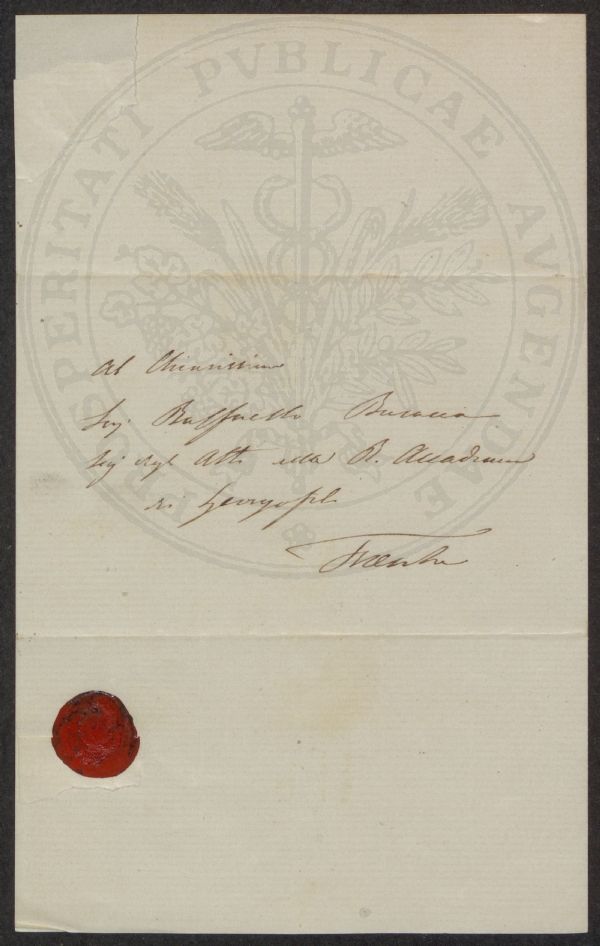 PROSPERITATI PVBLICAE AVGENDAE
Al Chiarissimo
Sig. Raffaello
Seg degli Atti della R. Accademia
di Georgofili
Firenze